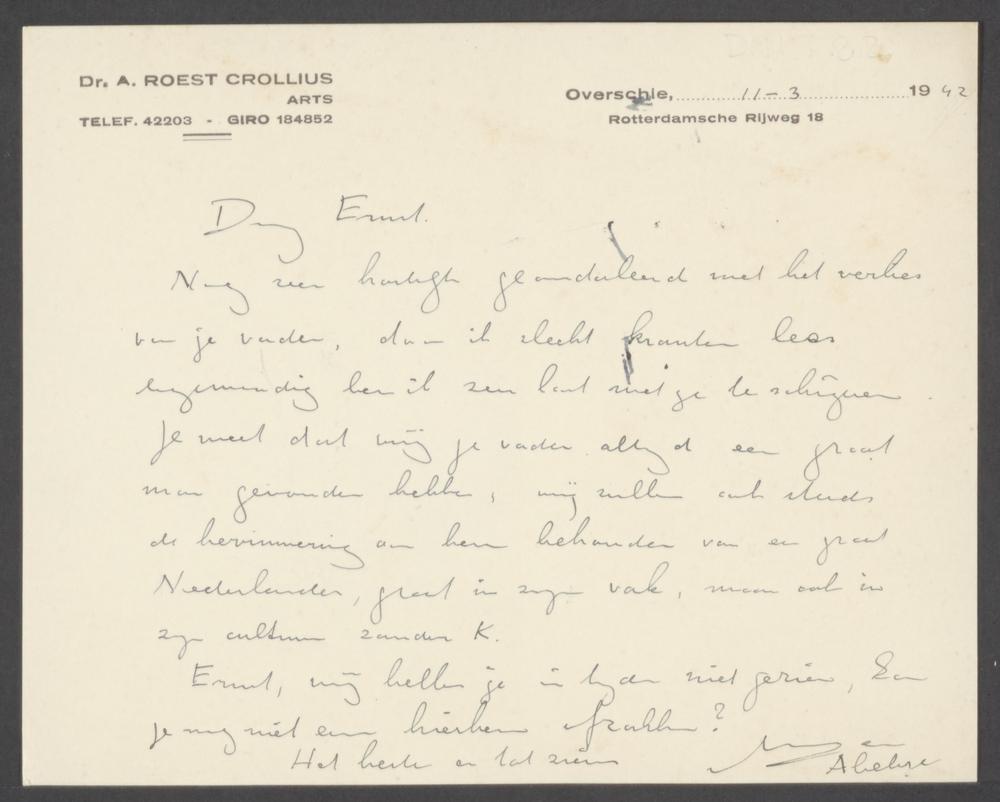 Dr. A. ROEST CROLLIUS
ARTS
TELEF. 42203 - GIRO 184852
Overschie, 11-3 1942
Rotterdamsche Rijweg 18
Dag Ernst.
Nog zeer hartelijk gecondoleerd met het verlies
van je vader, daar ik slecht kranten lees
ben ik zeer laat met je te schrijven.
Je weet dat wij je vader altijd een groot
man gevonden hebben, wij zullen ook steeds
de herinnering aan hem behouden van een groot
Nederlander, groot in zijn vak, maar ook in
zijn cultuur zonder K.
Ernst, wij hebben je in tijden niet gezien, kan
je nog niet eens hierheen afzakken?
Het beste en tot ziens